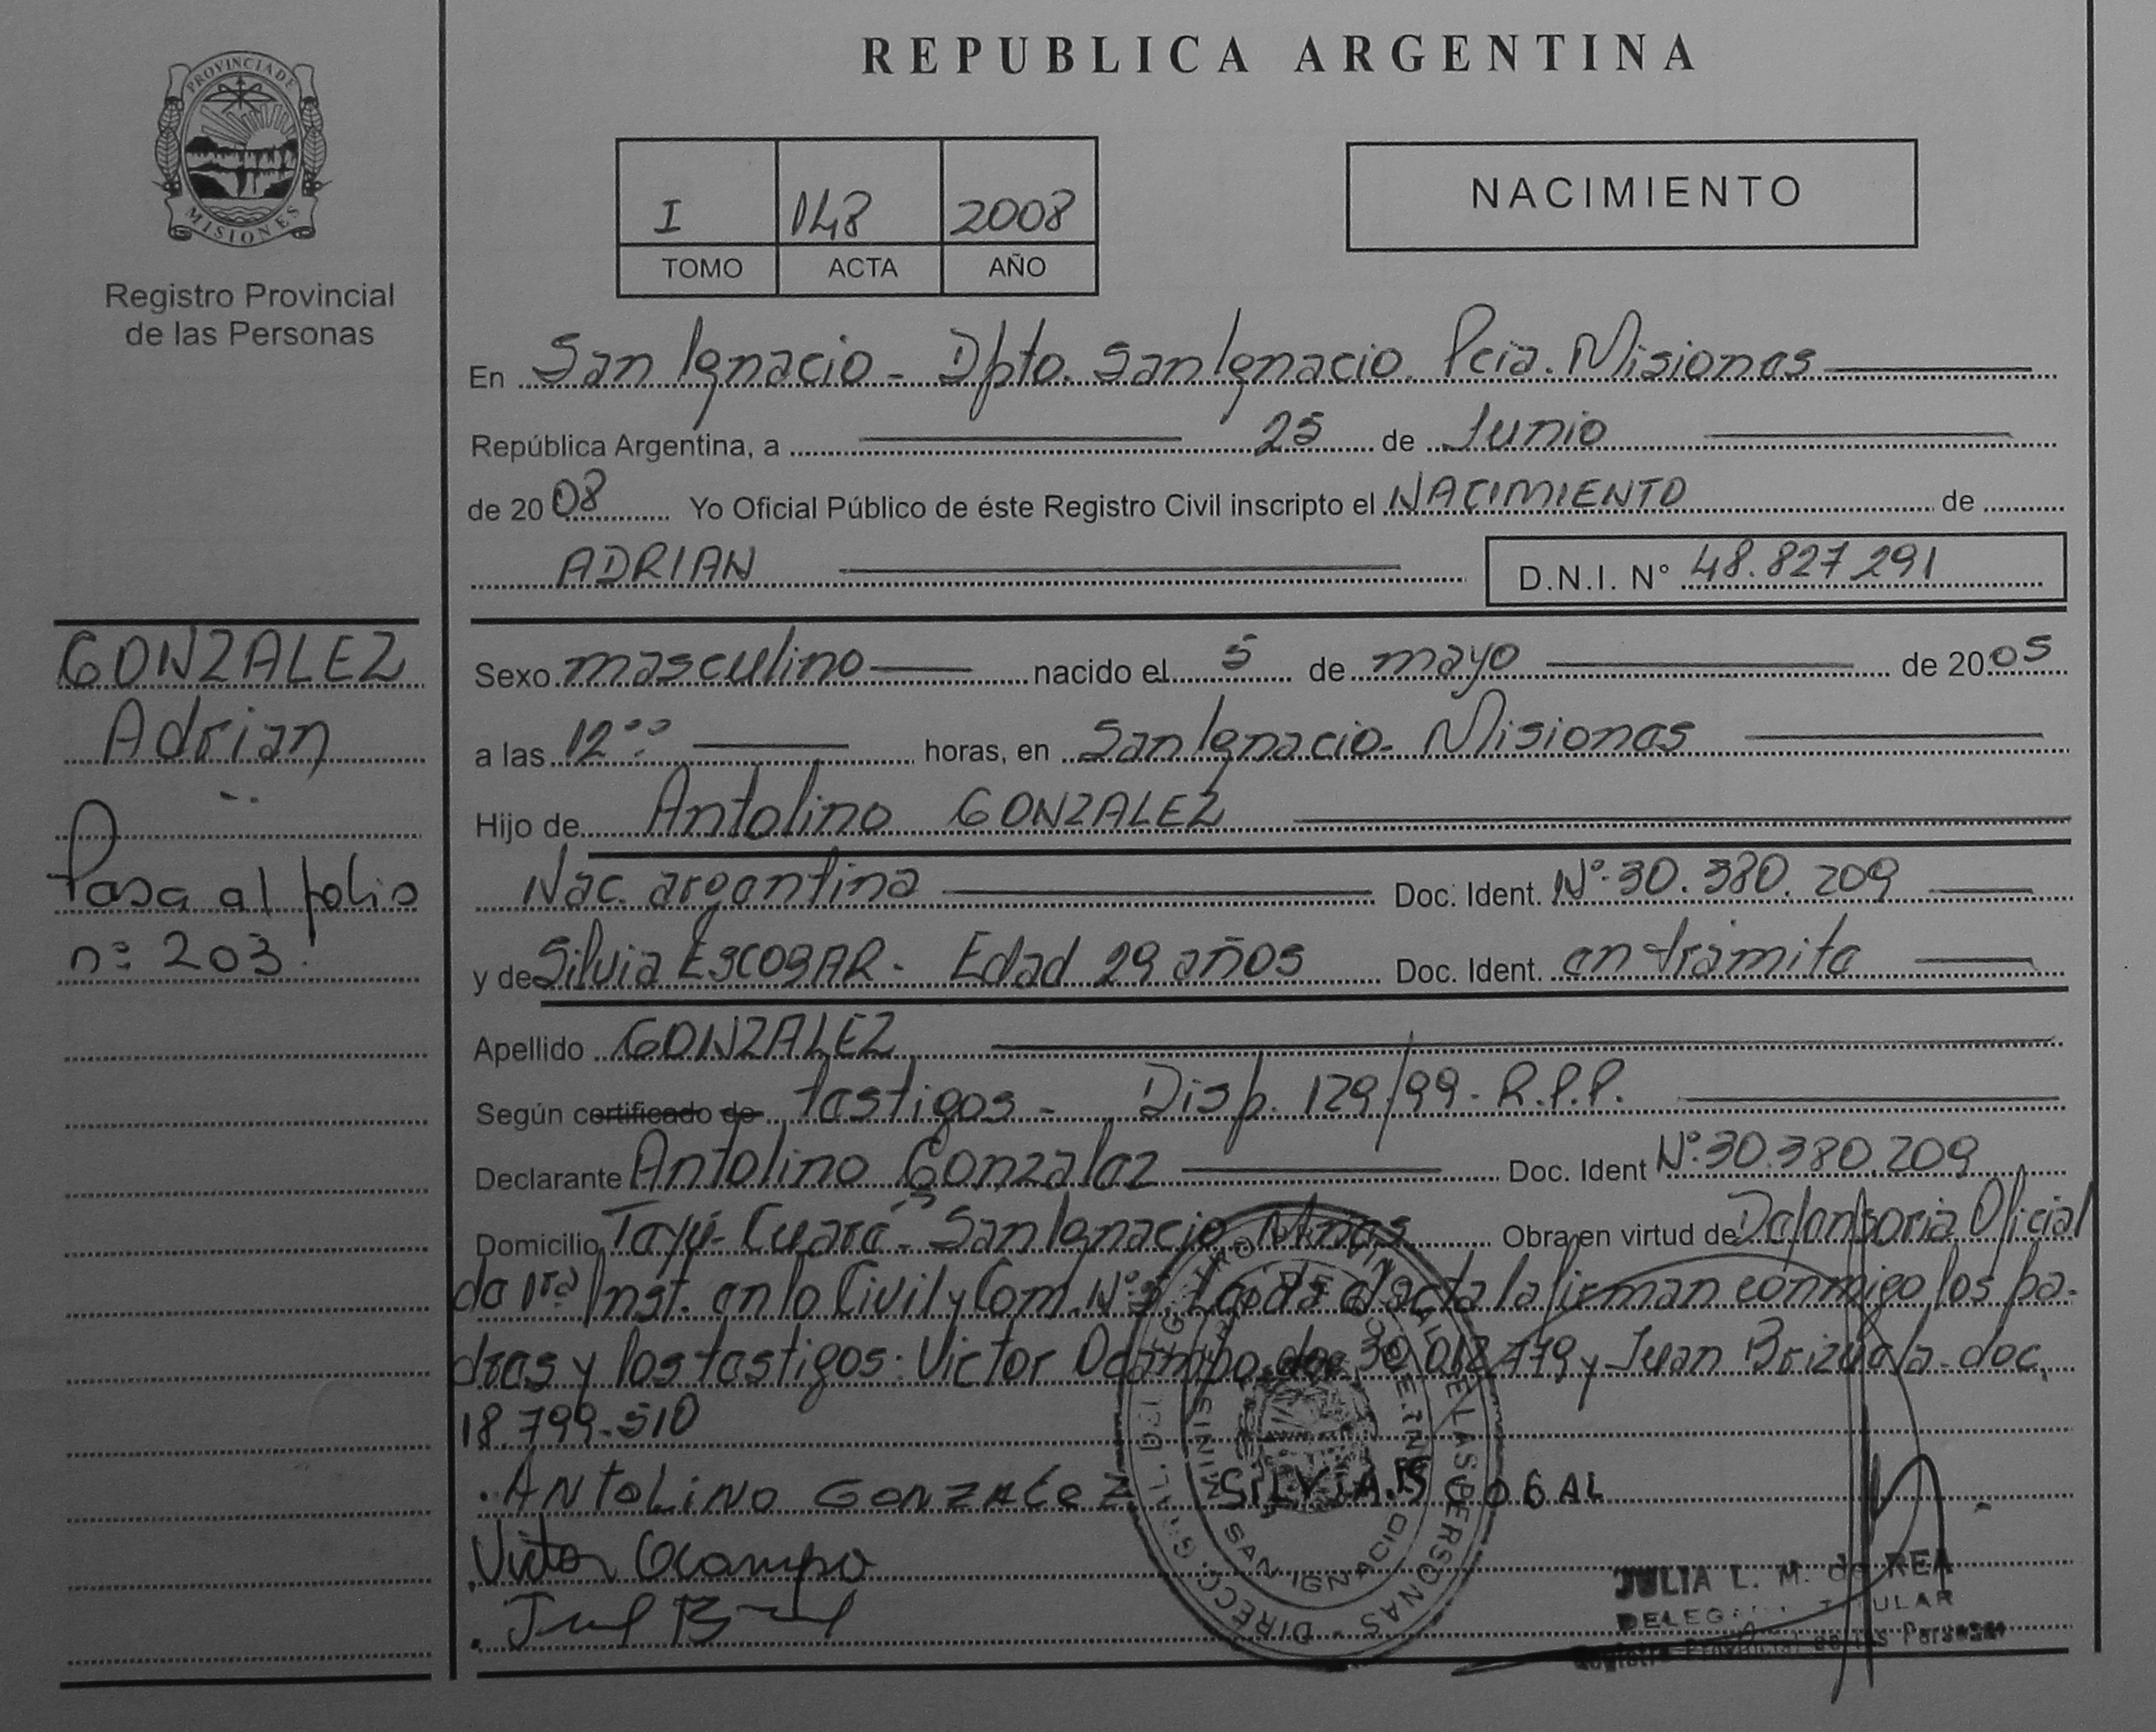 REPUBLICA ARGENTINA
PROVINCIA DE
MISIONES
Registro Provincial
de las Personas
I 048 2008
TOMO ACTA AÑO
NACIMIENTO
En San Ignacio - Dpto. San Ignacio. Pcia. Misiones
República Argentina, a 25 de Junio
de 2008 Yo Oficial Público de éste Registro Civil inscripto el NACIMIENTO de
ADRIAN D.N.I. N° 48.827 291
GONZALEZ
Adrian
Pasa al folio
nº 203.
Sexo masculino nacido el 5 de mayo de 2005
a las 12°° horas, en San Ignacio - Misiones
Hijo de Antolino GONZALEZ
Nac. argentina Doc. Ident. Nº 30.380.209
y de Silvia ESCOBAR - Edad 29 años Doc. Ident. en trámite
Apellido GONZALEZ
Según certificado de testigos - Disp. 129/99 - R.P.P.
Declarante Antolino Gonzalez Doc. Ident Nº 30.380.209
Domicilio Tayú-Cuaré - San Ignacio Mnes Obra en virtud de Defensoria Oficial
de 1ra Inst. en lo Civil y Com. Leída el acta la firman conmigo los pa-
dres y los testigos: Victor Ocampo doc. y Juan Brizuela - doc.
18.799.510
ANTOLINO GONZALEZ
Victor Ocampo
JULIA L. M. de REA
TITULAR
Registro Provincial de las Personas
SAN IGNACIO